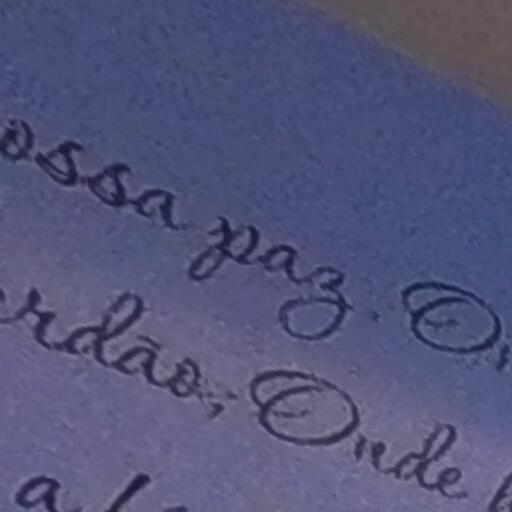 ossa paz. O
rdão; Onde
a